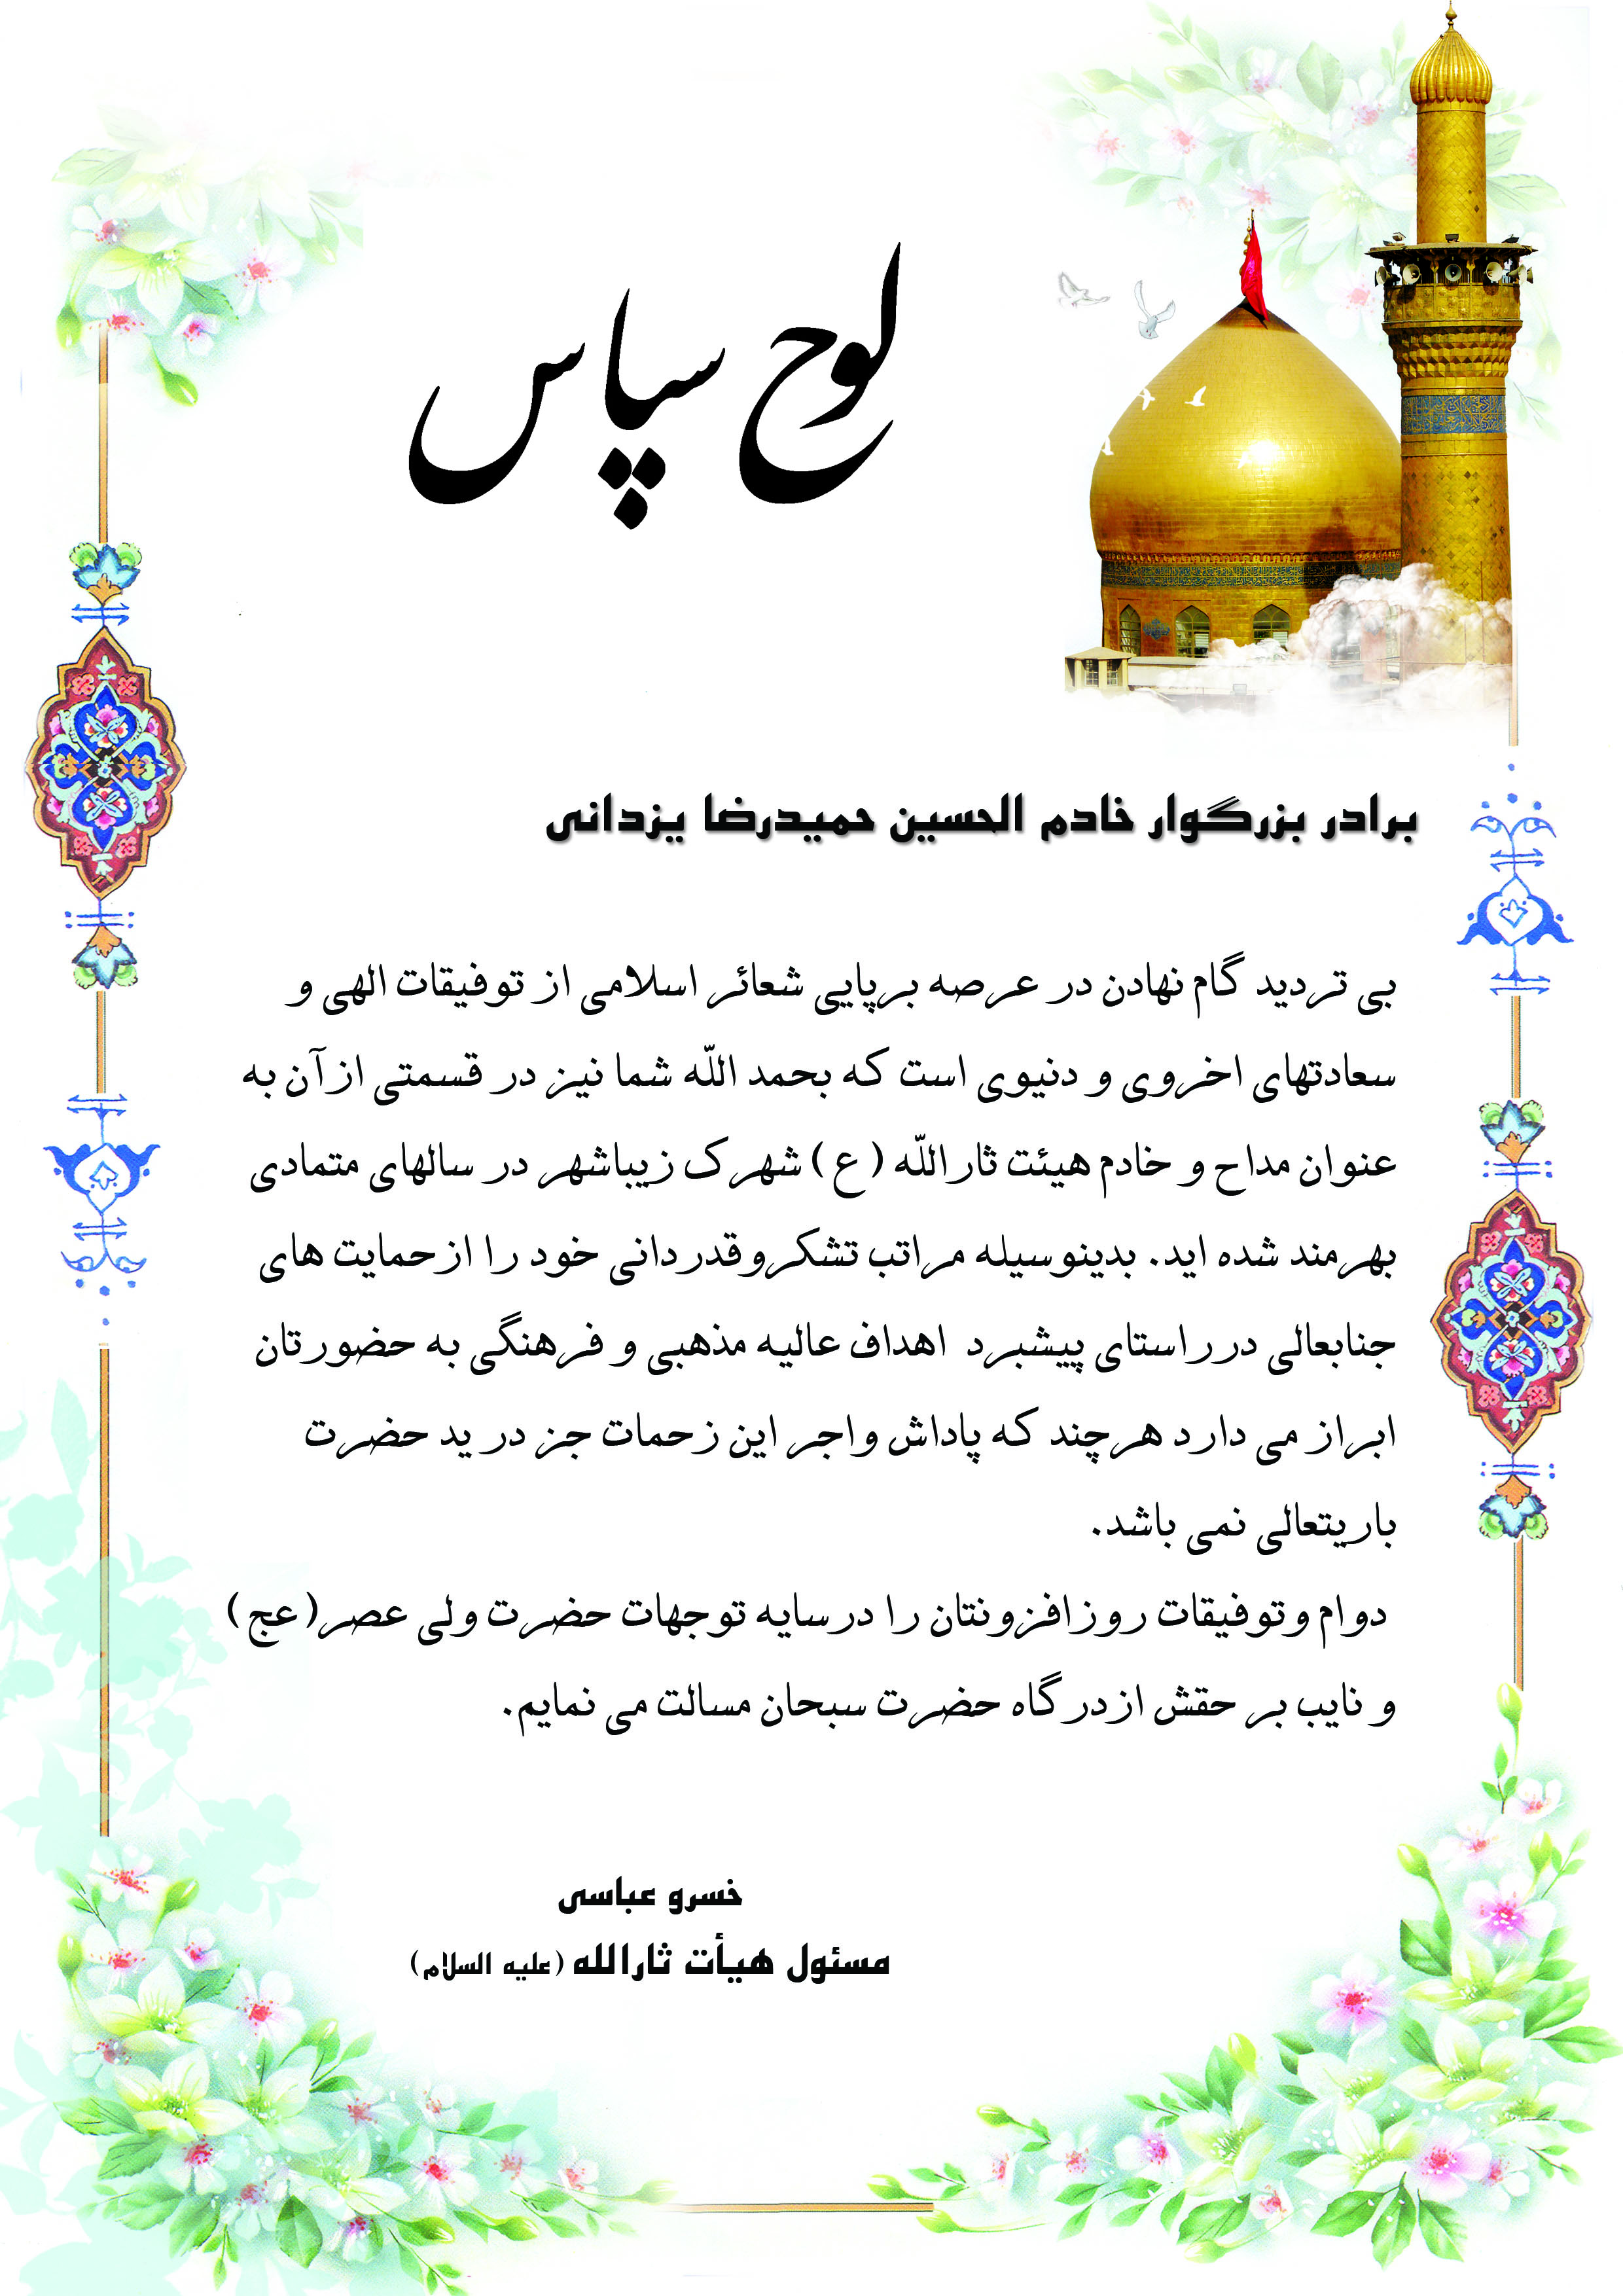 لوح سپاس
برادر بزرگوار خادم الحسین حمیدرضا یزدانی
بی تردید گام نهادن در عرصه برپایی شعائر اسلامی از توفیقات الهی و
سعادتهای اخروی و دنیوی است که بحمد اللّه شما نیز در قسمتی ازآن به
عنوان مداح و خادم هیئت ثاراللّه (ع) شهرک زیباشهر در سالهای متمادی
بهرمند شده اید. بدینوسیله مراتب تشکروقدردانی خود را ازحمایت های
جنابعالی درراستای پیشبرد اهداف عالیه مذهبی و فرهنگی به حضورتان
ابراز می دارد هرچند که پاداش واجر این زحمات جز در ید حضرت
باریتعالی نمی باشد.
دوام وتوفیقات روزافزونتان را درسایه توجهات حضرت ولی عصر(عج)
و نایب بر حقش ازدرگاه حضرت سبحان مسالت می نمایم.
خسرو عباسی
مسئول هیأت ثارالله (علیه السلام)